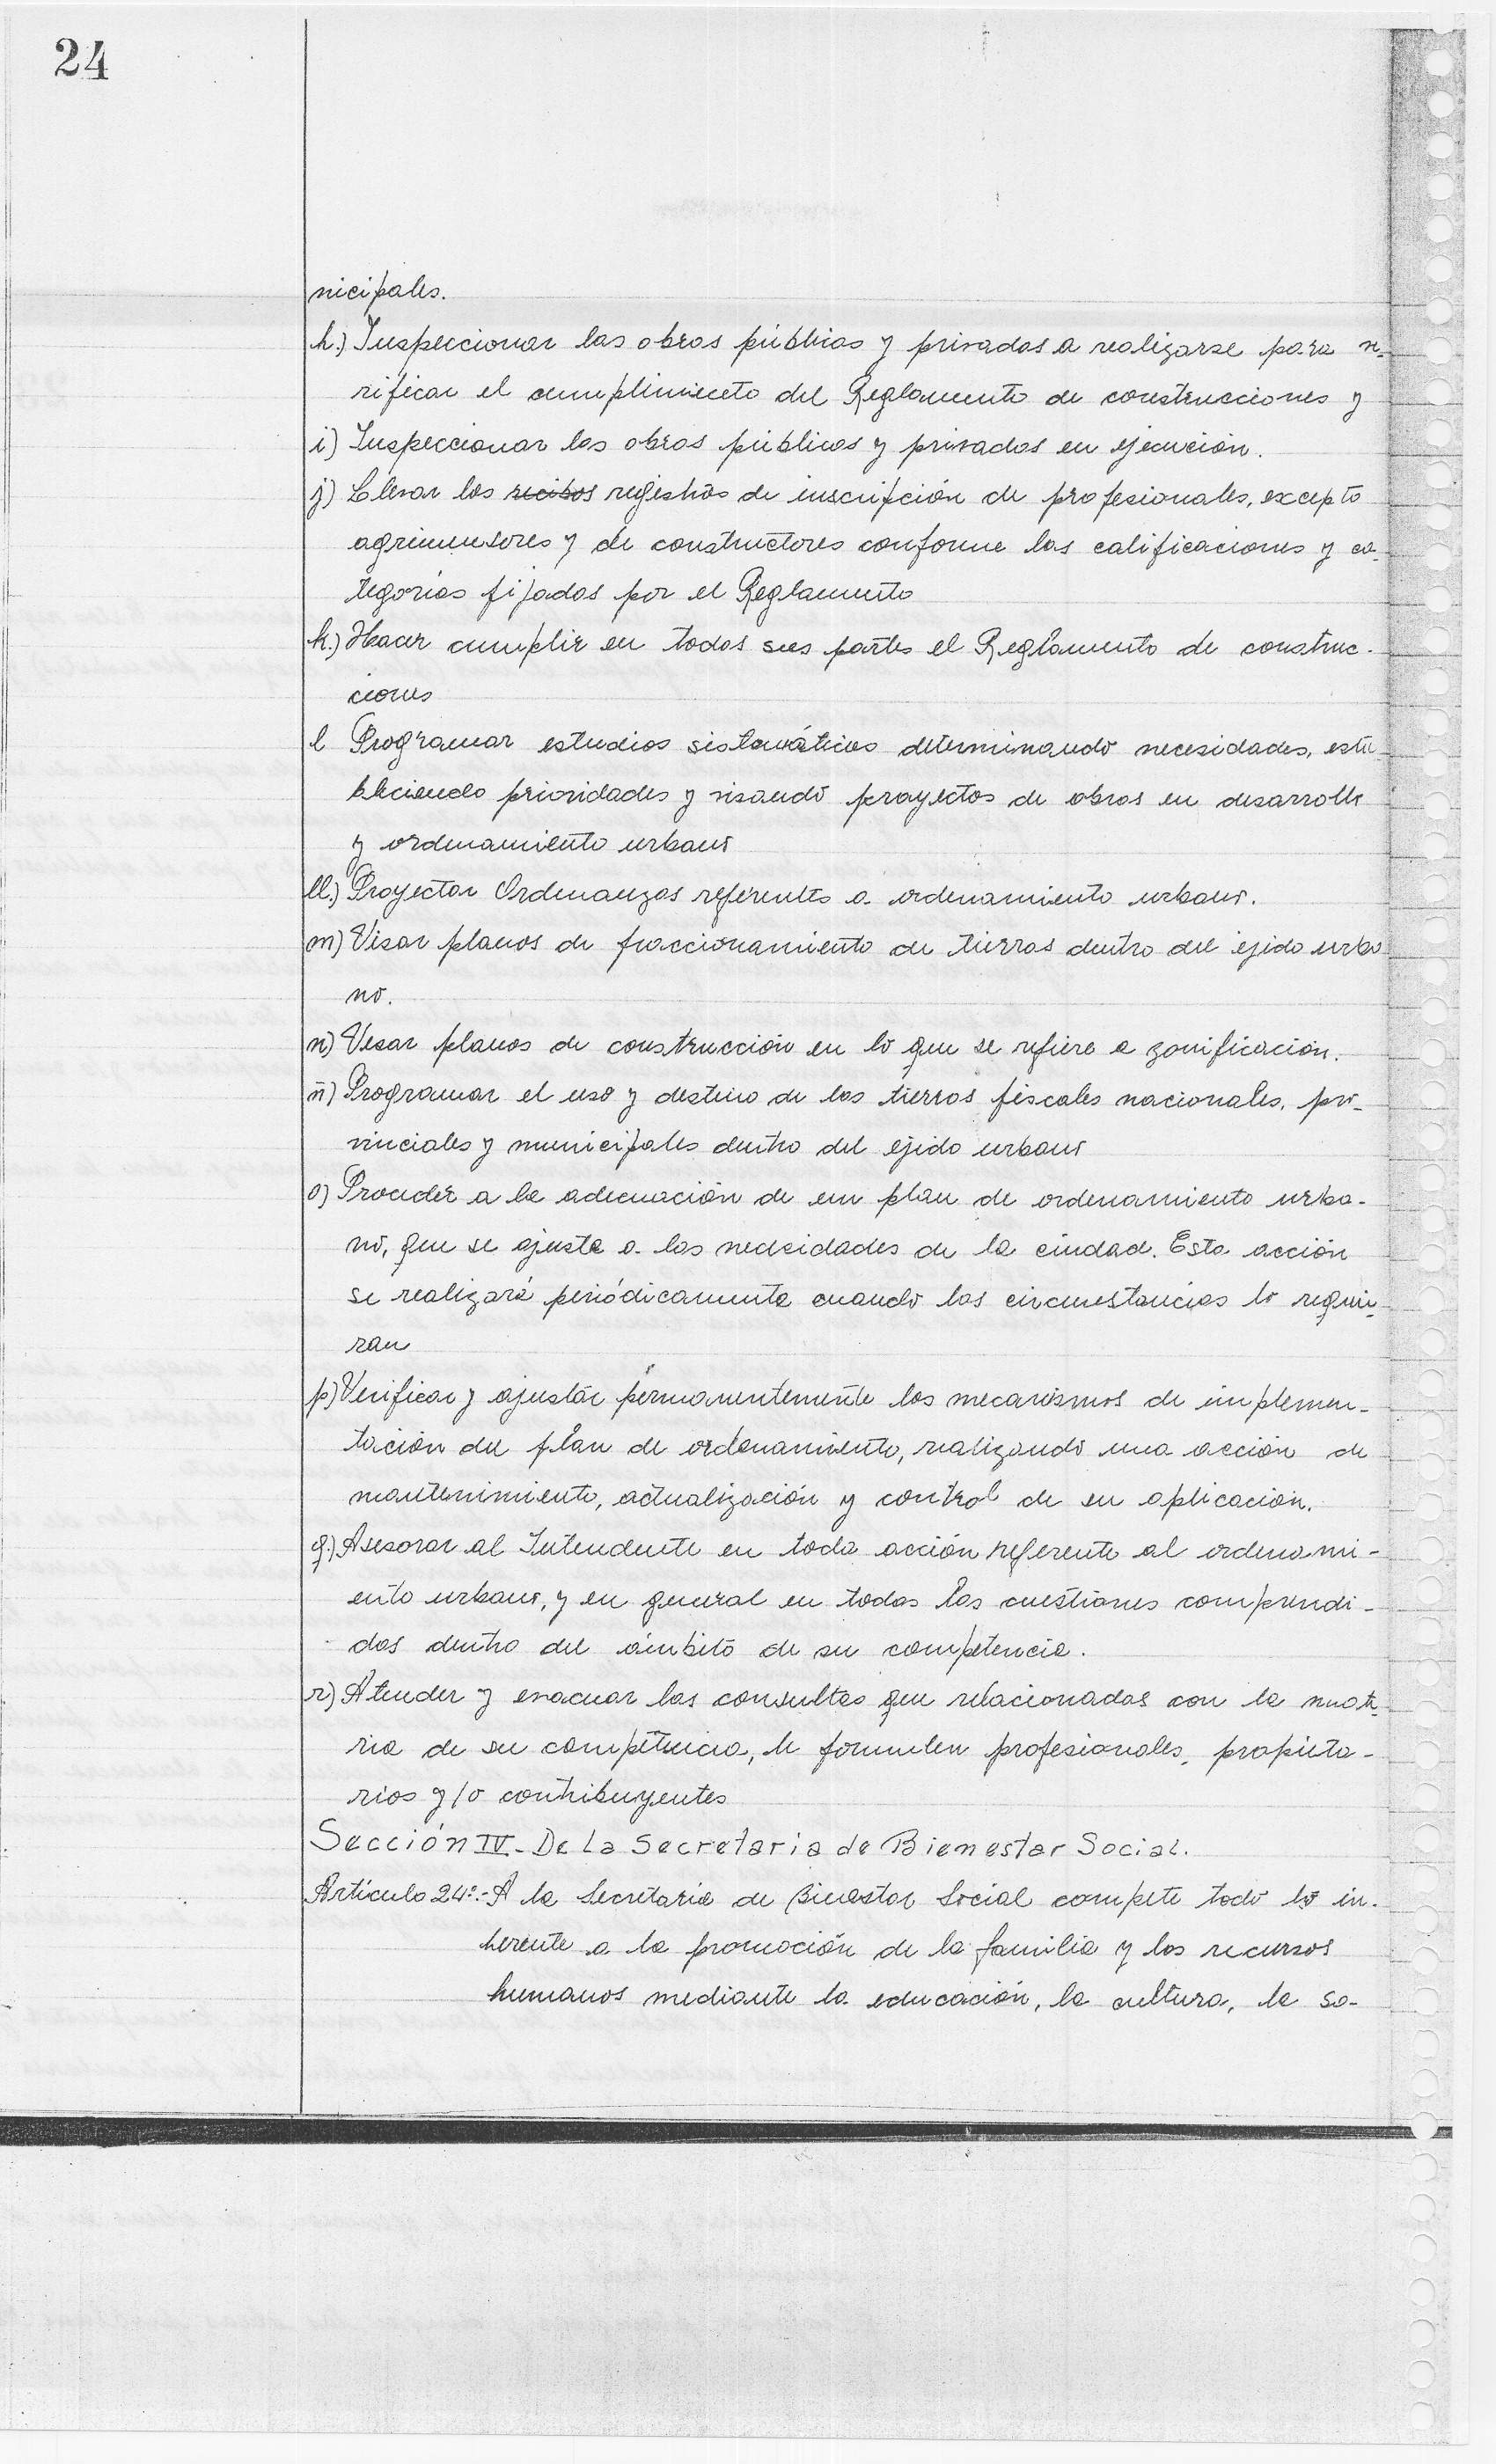 24
nicipales.
h.) Inspeccionar las obras públicas y privadas a realizarse para ve-
rificar el cumplimiento del Reglamento de construcciones y
i) Inspeccionar las obras públicas y privadas en ejecución.
j) Llevar los recibos registros de inscripción de profesionales, excepto
agrimensores y de constructores conforme las calificaciones y ca-
tegorías fijadas por el Reglamento
k.) Hacer cumplir en todas sus partes el Reglamento de construc-
ciones
l Programar estudios sistemáticos determinando necesidades, esta-
bleciendo prioridades y visando proyectos de obras en desarrollo
y ordenamiento urbano
ll.) Proyectar Ordenanzas referentes a ordenamiento urbano.
m) Visar planos de fraccionamiento de tierras dentro del ejido urba
no.
n) Visar planos de construcción en lo que se refiere a zonificación.
ñ) Programar el uso y destino de las tierras fiscales nacionales, pro-
vinciales y municipales dentro del ejido urbano
o) Proceder a la adecuación de un plan de ordenamiento urba-
no, que se ajuste a las necesidades de la ciudad. Esta acción
se realizará periódicamente cuando las circunstancias lo requie-
ran
p) Verificar y ajustar permanentemente los mecanismos de implemen-
tación del plan de ordenamiento, realizando una acción de
mantenimiento, actualización y control de su aplicación.
q.) Asesorar al Intendente en toda acción referente al ordenami-
ento urbano, y en general en todas las cuestiones comprendi-
das dentro del ámbito de su competencia.
r) Atender y evacuar las consultas que relacionadas con la mate-
ria de su competencia, le formulen profesionales, propieta-
rios y/o contribuyentes
Sección IV - De la Secretaria de Bienestar Social.
Artículo 24º.- A la Secretaría de Bienestar Social compete todo lo in-
herente a la promoción de la familia y los recursos
humanos mediante la educación, la cultura, la so-